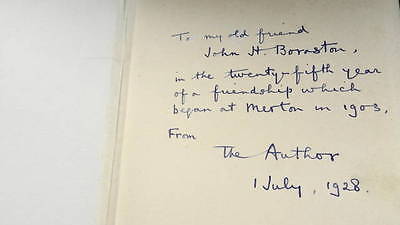 To my old friend
John H. Boraston,
in the twenty-fifth year
of a friendship which
began at Merton in 1903,
From
The Author
1 July, 1928.